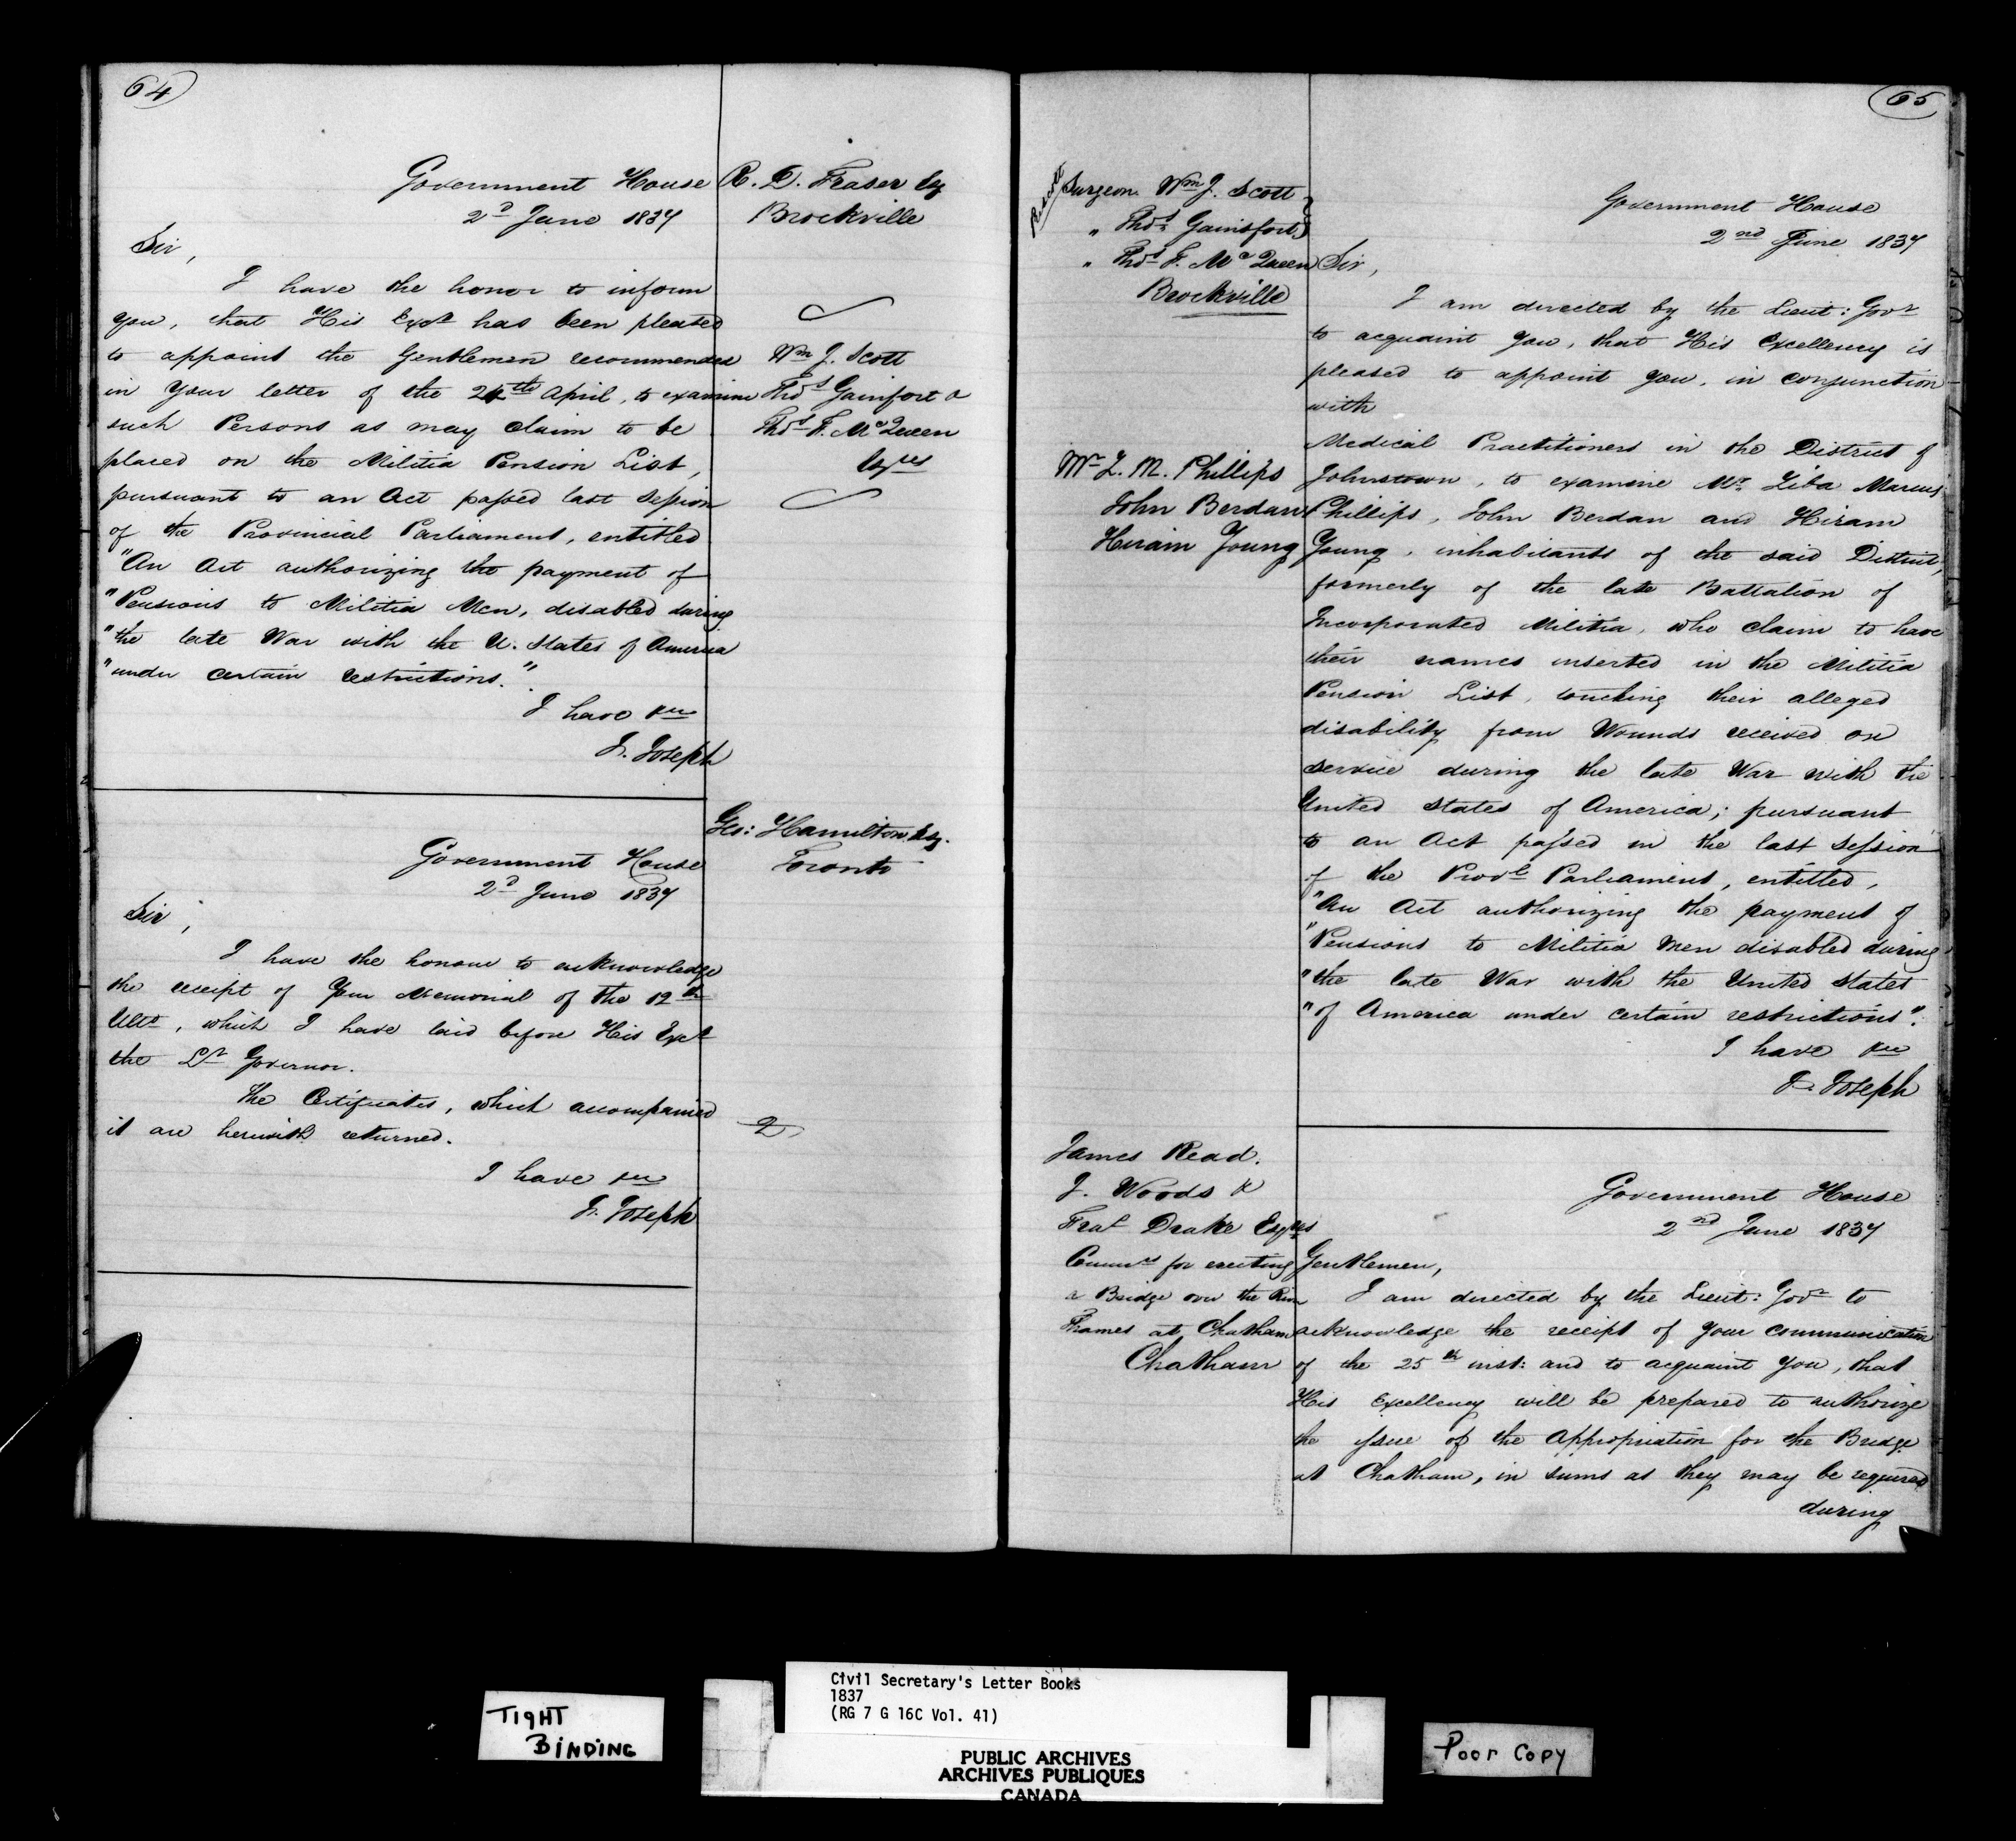 64
Government House
2d June 1837
R. D. Fraser Esq
Brockville
Sir,
I have the honor to inform
you, that His Excy has been pleased
to appoint the Gentlemen recommended
in Your letter of the 24th April, to examine
such Persons as may claim to be
placed on the Militia Pension List,
pursuant to an Act passed last Session
of the Provincial Parliament, entitled
"An Act authorizing the payment of
"Pensions to Militia Men, disabled during
"the late War with the U. States of America
"under certain restrictions."
I have &c
J. Joseph
Wm J. Scott
Thos Gainfort &
Thos F. McQueen
Esqres
Geo: Hamilton Esq.
Toronto
Government House
2d June 1837
Sir,
I have the honour to acknowledge
the receipt of Your Memorial of the 12th
Ulto, which I have laid before His Excy
the Lt Governor.
The Certificates, which accompanied
it are herewith returned.
2
I have &c
J. Joseph
65
Surgeon Wm J. Scott
" Thos Gainsfort
" Thos F. McQueen
Brockville
Government House
2nd June 1837
Sir,
I am directed by the Lieut: Govr
to acquaint you, that His Excellency is
pleased to appoint you, in conjunction
with
Medical Practitioners in the District of
Johnstown, to examine Mr Ziba Marcus
Phillips, John Berdan and Hiram
Young, inhabitants of the said District,
formerly of the late Battalion of
Incorporated Militia, who claim to have
their names inserted in the Militia
Pension List, touching their alleged
disability from Wounds received on
service during the late War with the
United States of America; pursuant
to an Act passed in the last Session
of the Provl Parliament, entitled,
"An Act authorizing the payment of
"Pensions to Militia Men disabled during
"the late War with the United States
"of America under certain restrictions".
I have &c
J. Joseph
Mr Z. M. Phillips
John Berdan
Hiram Young
James Read.
J. Woods &
Fras Drake Esqres
Commrs for erecting
a Bridge over the River
Thames at Chatham
Chatham
Government House
2nd June 1837
Gentlemen,
I am directed by the Lieut: Govr to
acknowledge the receipt of your communication
of the 25th inst: and to acquaint you, that
His Excellency will be prepared to authorize
the issue of the Appropriation for the Bridge
at Chatham, in sums as they may be required
during
TIGHT
BINDING
Civil Secretary's Letter Books
1837
(RG 7 G 16C Vol. 41)
PUBLIC ARCHIVES
ARCHIVES PUBLIQUES
CANADA
Poor Copy